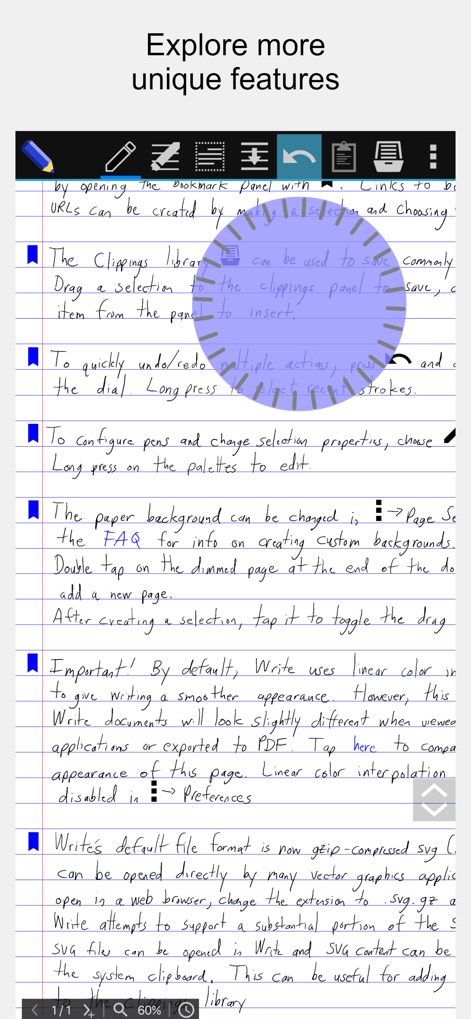 Explore more
unique features
by opening the Bookmark Panel with . Links to b
URLs can be created by making a selection and choosing
The Clippings library can be used to save commonly
Drag a selection to the clippings panel to save,
item from the panel to insert.
To quickly undo/redo multiple actions, press and
the dial. Long press to select recent strokes.
To configure pens and change selection properties, choose
Long press on the palettes to edit.
The paper background can be changed in → Page Se
the FAQ for info on creating custom backgrounds.
Double tap on the dimmed page at the end of the do
add a new page.
After creating a selection, tap it to toggle the drag
Important! By default, Write uses linear color in
to give writing a smoother appearance. However, this
Write documents will look slightly different when viewed
applications or exported to PDF. Tap here to compa
appearance of this page. Linear color interpolation
disabled in → Preferences
Write's default file format is now gzip-compressed svg (.
can be opened directly by many vector graphics applic
open in a web browser, change the extension to .svg.gz a
Write attempts to support a substantial portion of the S
SVG files can be opened in Write and SVG content can be
the system clipboard. This can be useful for adding
to the clipping library
1/1 60%